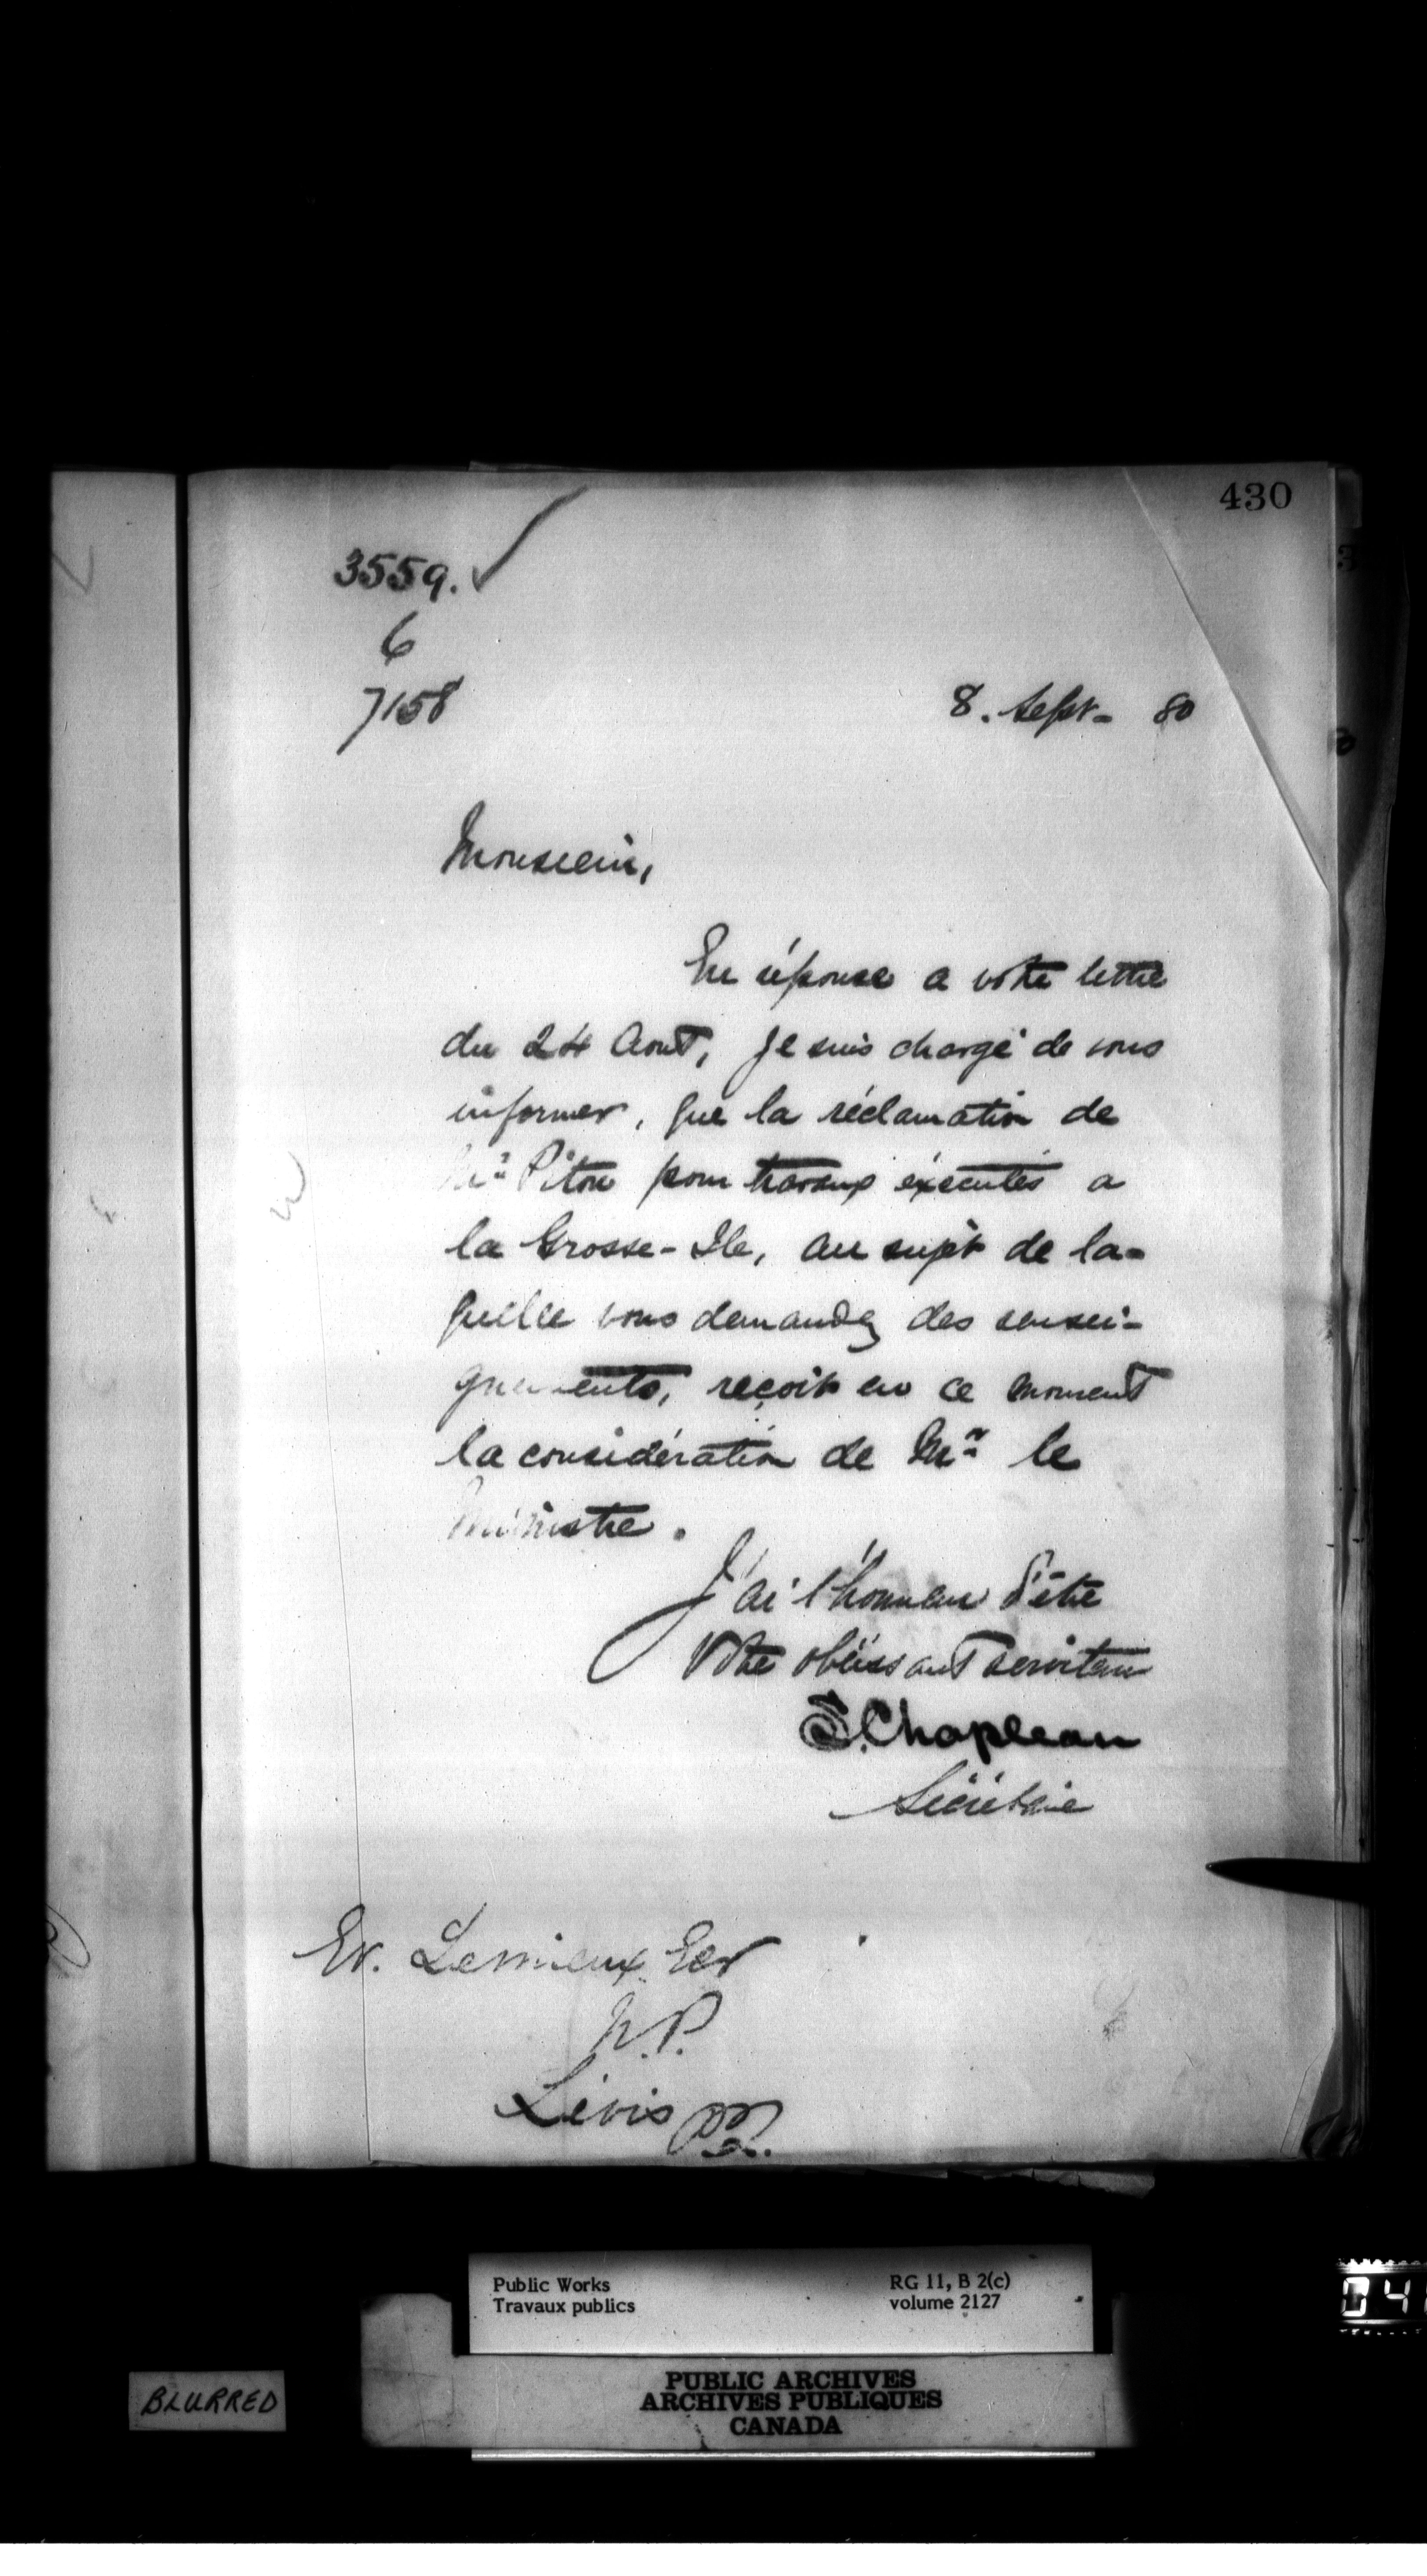 430
3559. ✓
6
7158
8. Sept- 80
Monsieur,
En réponse a votre lettre
du 24 Aout, je suis chargé de vous
informer, que la réclamation de
Mr Piton pour travaux éxecutés a
la Grosse-Ile, au sujet de la-
quelle vous demandez des rensei-
gnements, reçoit en ce moment
la considération de Mr le
Ministre.
J'ai l'honneur d'être
Votre obéissant serviteur
S. Chapleau
Sécrétaire
Ev. Lemieux Ecr
N.P.
Lévis PQ.
Public Works
Travaux publics
RG 11, B 2(c)
volume 2127
BLURRED
PUBLIC ARCHIVES
ARCHIVES PUBLIQUES
CANADA